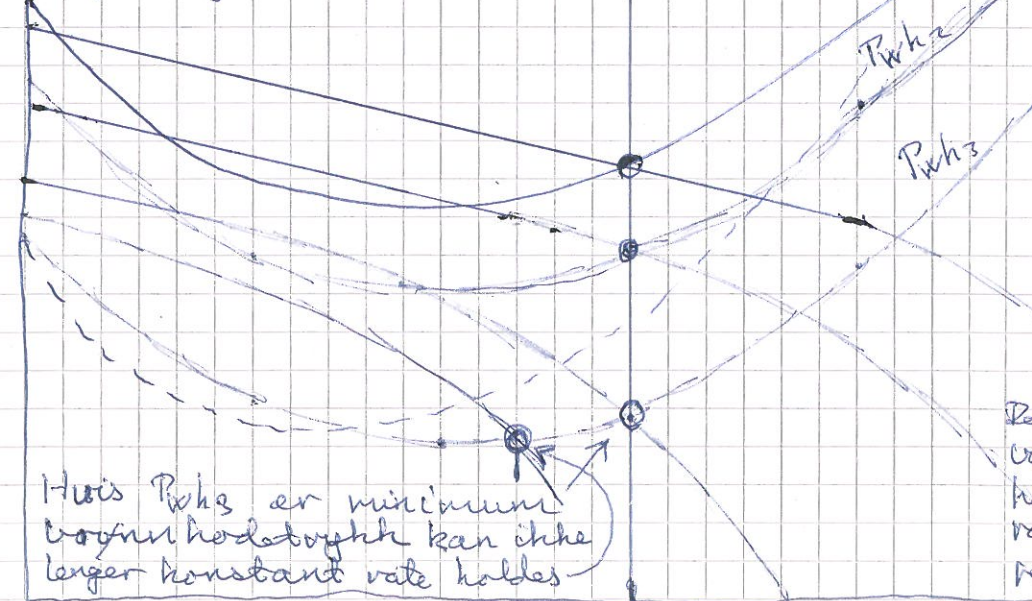 Pwh2
Pwh3
Hvis Pwh3 er minimum
brønnhodetrykk kan ikke
lenger konstant rate holdes